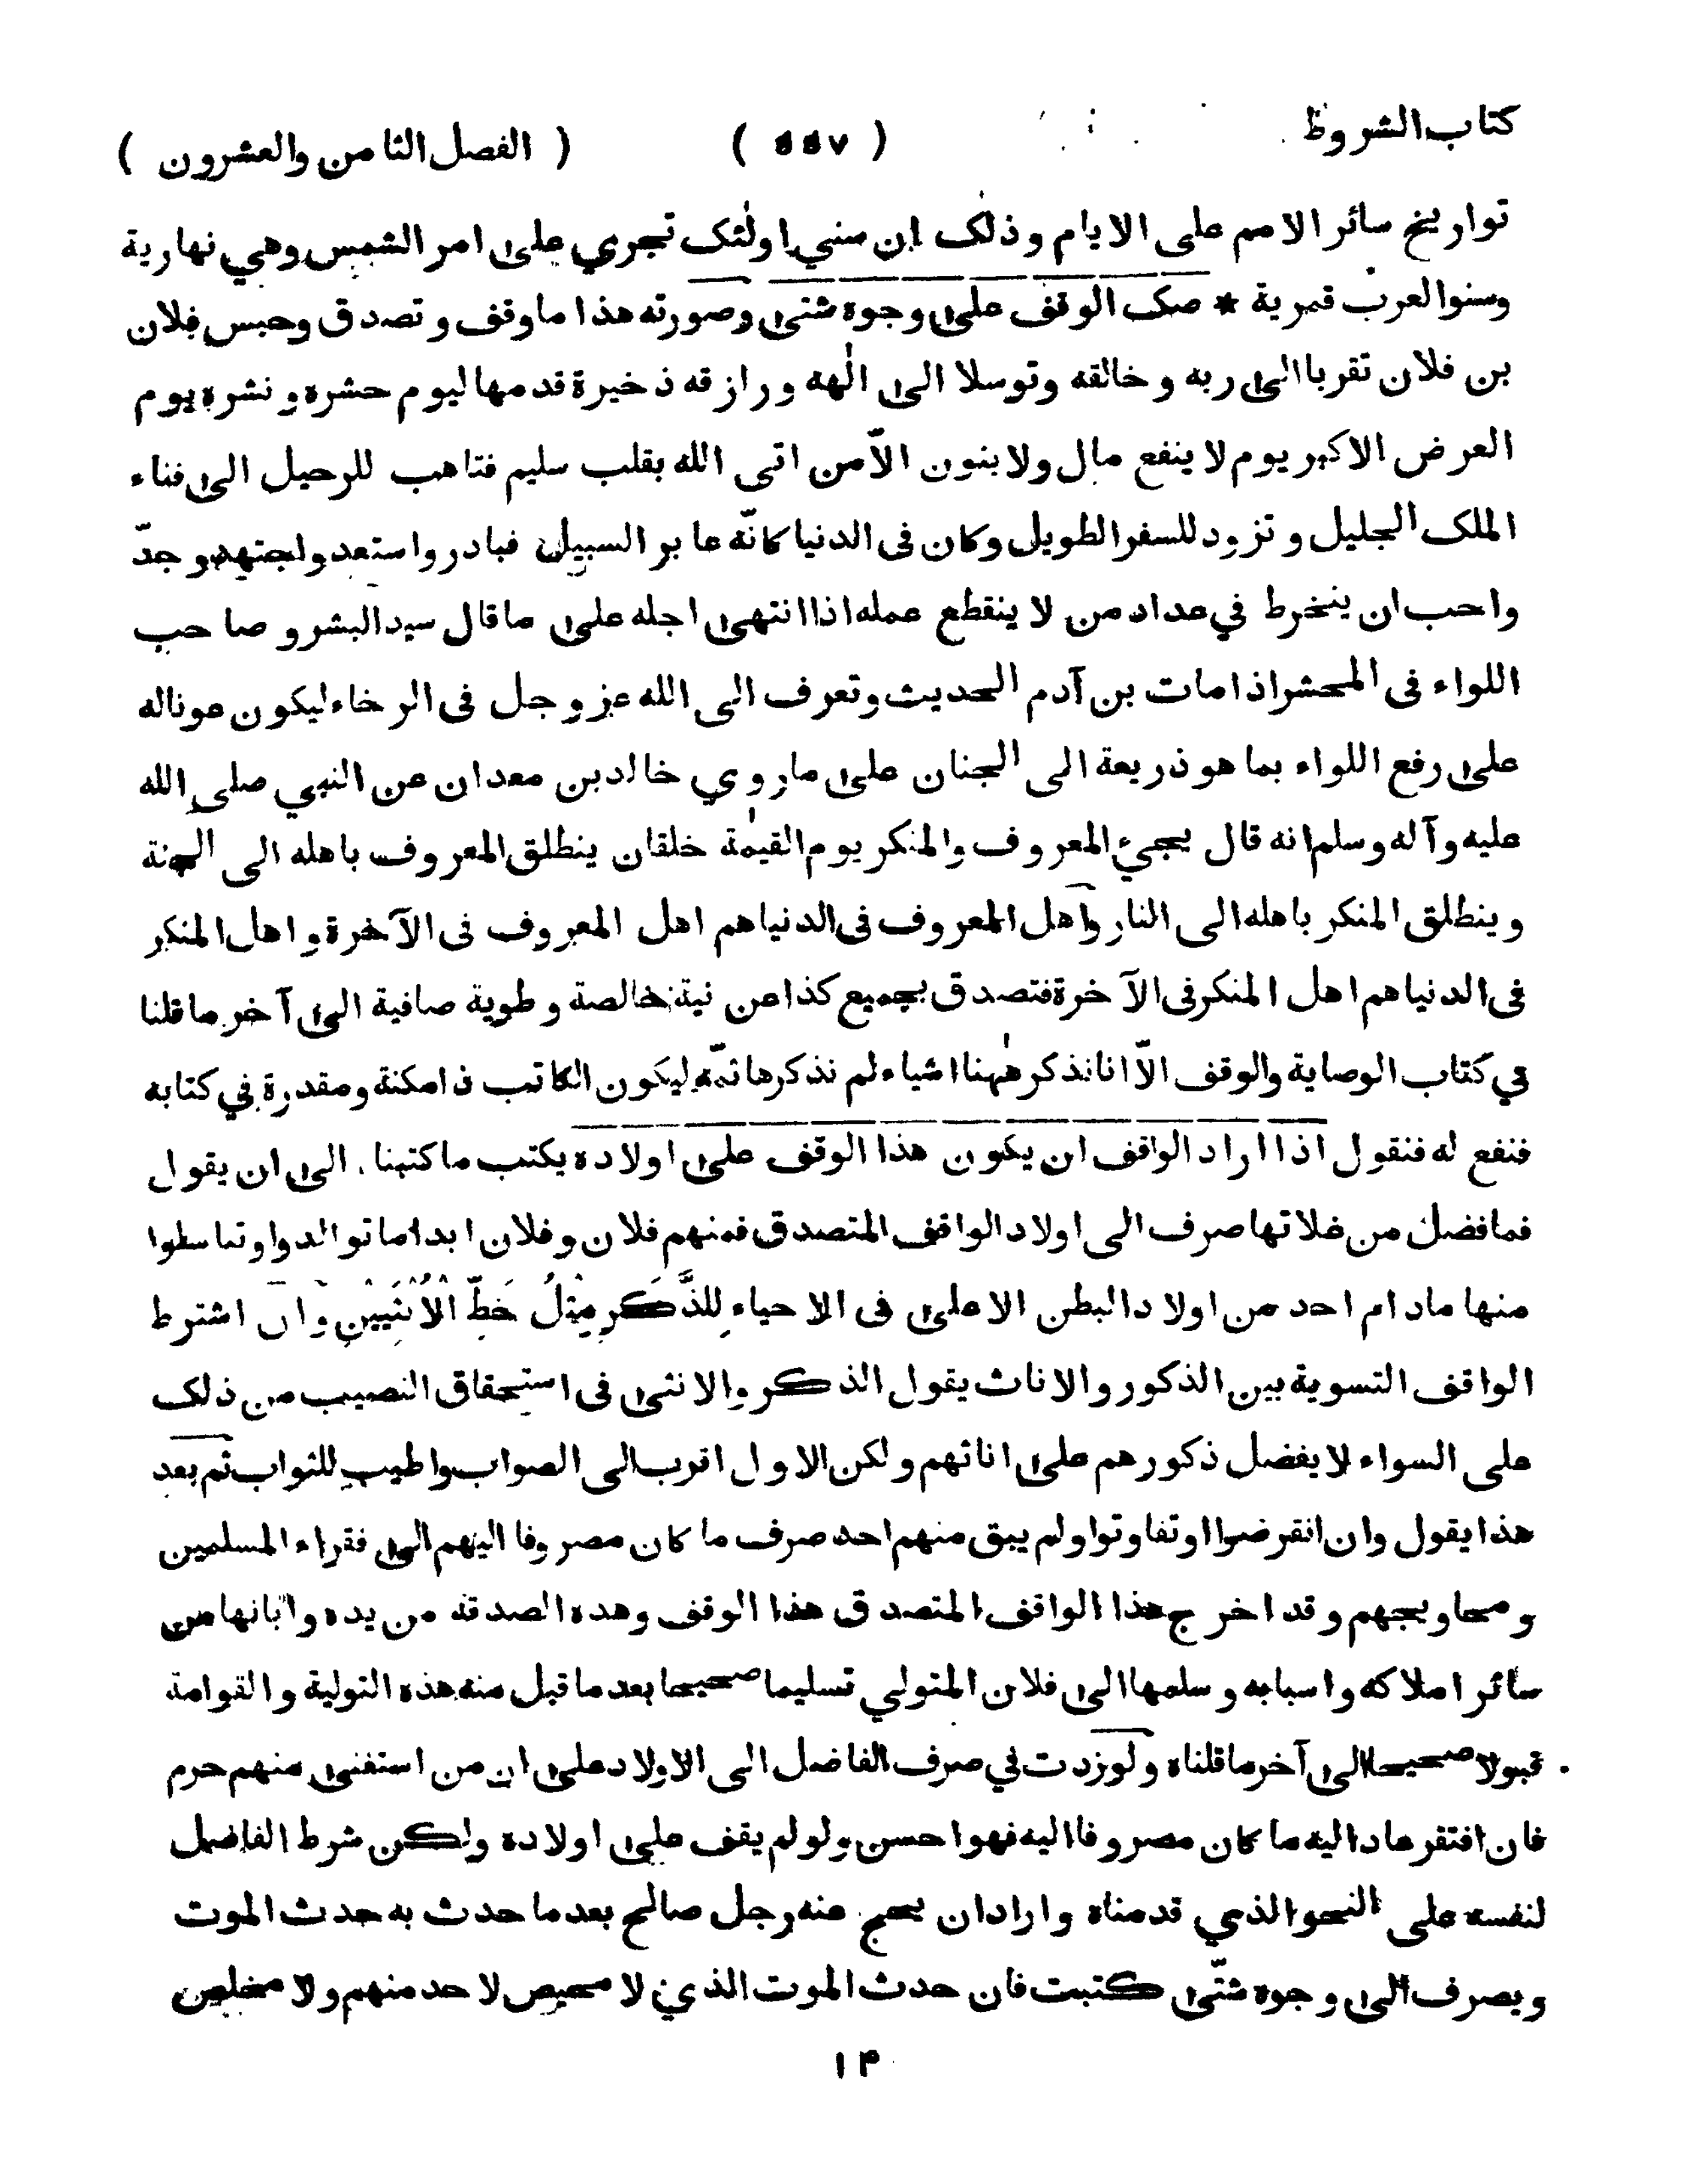 كتاب الشروط ( ٥٥٧ ) ( الفصل الثامن والعشرون )
تواريخ سائر الامم على الايام وذلك ان سني اولٰئك تجري على امر الشمس وهي نهارية
وسنوا لعرب قمرية * صك الوقف على وجوه شتى وصورته هذا ما وقف وتصدق وحبس فلان
بن فلان تقربا الى ربه وخالقه وتوسلا الى الٰهه ورازقه ذخيرة قدمها ليوم حشره ونشره يوم
العرض الاكبر يوم لا ينفع مال ولا بنون الّا من اتى الله بقلب سليم فتاهب للرحيل الى فناء
الملك الجليل وتزود للسفر الطويل وكان فى الدنيا كانّه عابر السبيل فبادر واستعد واجتهد وجدّ
واحب ان ينخرط في عداد من لا ينقطع عمله اذا انتهى اجله على ما قال سيد البشر و صاحب
اللواء فى المحشر اذا مات بن آدم الحديث وتعرف الى الله عز و جل فى الرخاء ليكون عوناله
على رفع اللواء بما هو ذريعة الى الجنان على ما روي خالد بن معدان عن النبي صلى الله
عليه وآله وسلم انه قال يجيء المعروف والمنكر يوم القيٰمة خلقان ينطلق المعروف باهله الى الجنة
وينطلق المنكر باهله الى النار واهل المعروف فى الدنيا هم اهل المعروف فى الآخرة و اهل المنكر
فى الدنيا هم اهل المنكر فى الآخرة فتصدق بجميع كذا عن نية خالصة وطوية صافية الى آخر ما قلنا
في كتاب الوصاية والوقف الّا انا نذكر هٰهنا اشياء لم نذكرها ثمّه ليكون الكاتب ذا مكنة ومقدرة في كتابه
فنفع له فنقول اذا اراد الواقف ان يكون هذا الوقف على اولاده يكتب ما كتبنا الى ان يقول
فما فضل من غلاتها صرف الى اولاد الواقف المتصدق فمنهم فلان وفلان ابدا ما توالدوا وتناسلوا
منها مادام احد من اولاد البطن الاعلى فى الاحياء لِلذَّكَرِ مِثْلُ حَظِّ الْاُنْثَيَيْنِ وان اشترط
الواقف التسوية بين الذكور والاناث يقول الذكر والانثى فى استحقاق النصيب من ذلك
على السواء لا يفضل ذكورهم على اناثهم ولكن الاول اقرب الى الصواب واطيب للثواب ثم بعد
هذا يقول وان انقرضوا او تفاوتوا ولم يبق منهم احد صرف ما كان مصروفا اليهم الى فقراء المسلمين
ومحاويجهم وقد اخرج هذا الواقف المتصدق هذا الوقف وهده الصدقة من يده وابانها من
سائر املاكه واسبابه وسلمها الى فلان المتولي تسليما صحيحا بعد ما قبل منه هذه التولية والقوامة
قبولا صحيحا الى آخر ما قلناه ولو زدت في صرف الفاضل الى الاولاد على ان من استغنى منهم حرم
فان افتقر عاد اليه ما كان مصروفا اليه فهوا حسن ولو لم يقف على اولاده ولكن شرط الفاضل
لنفسه على النحو الذي قدمناه واراد ان يحج عنه رجل صالح بعد ما حدث به حدث الموت
ويصرف الى وجوه شتّى كتبت فان حدث الموت الذي لا محيص لاحد منهم ولا مخلص
١٣